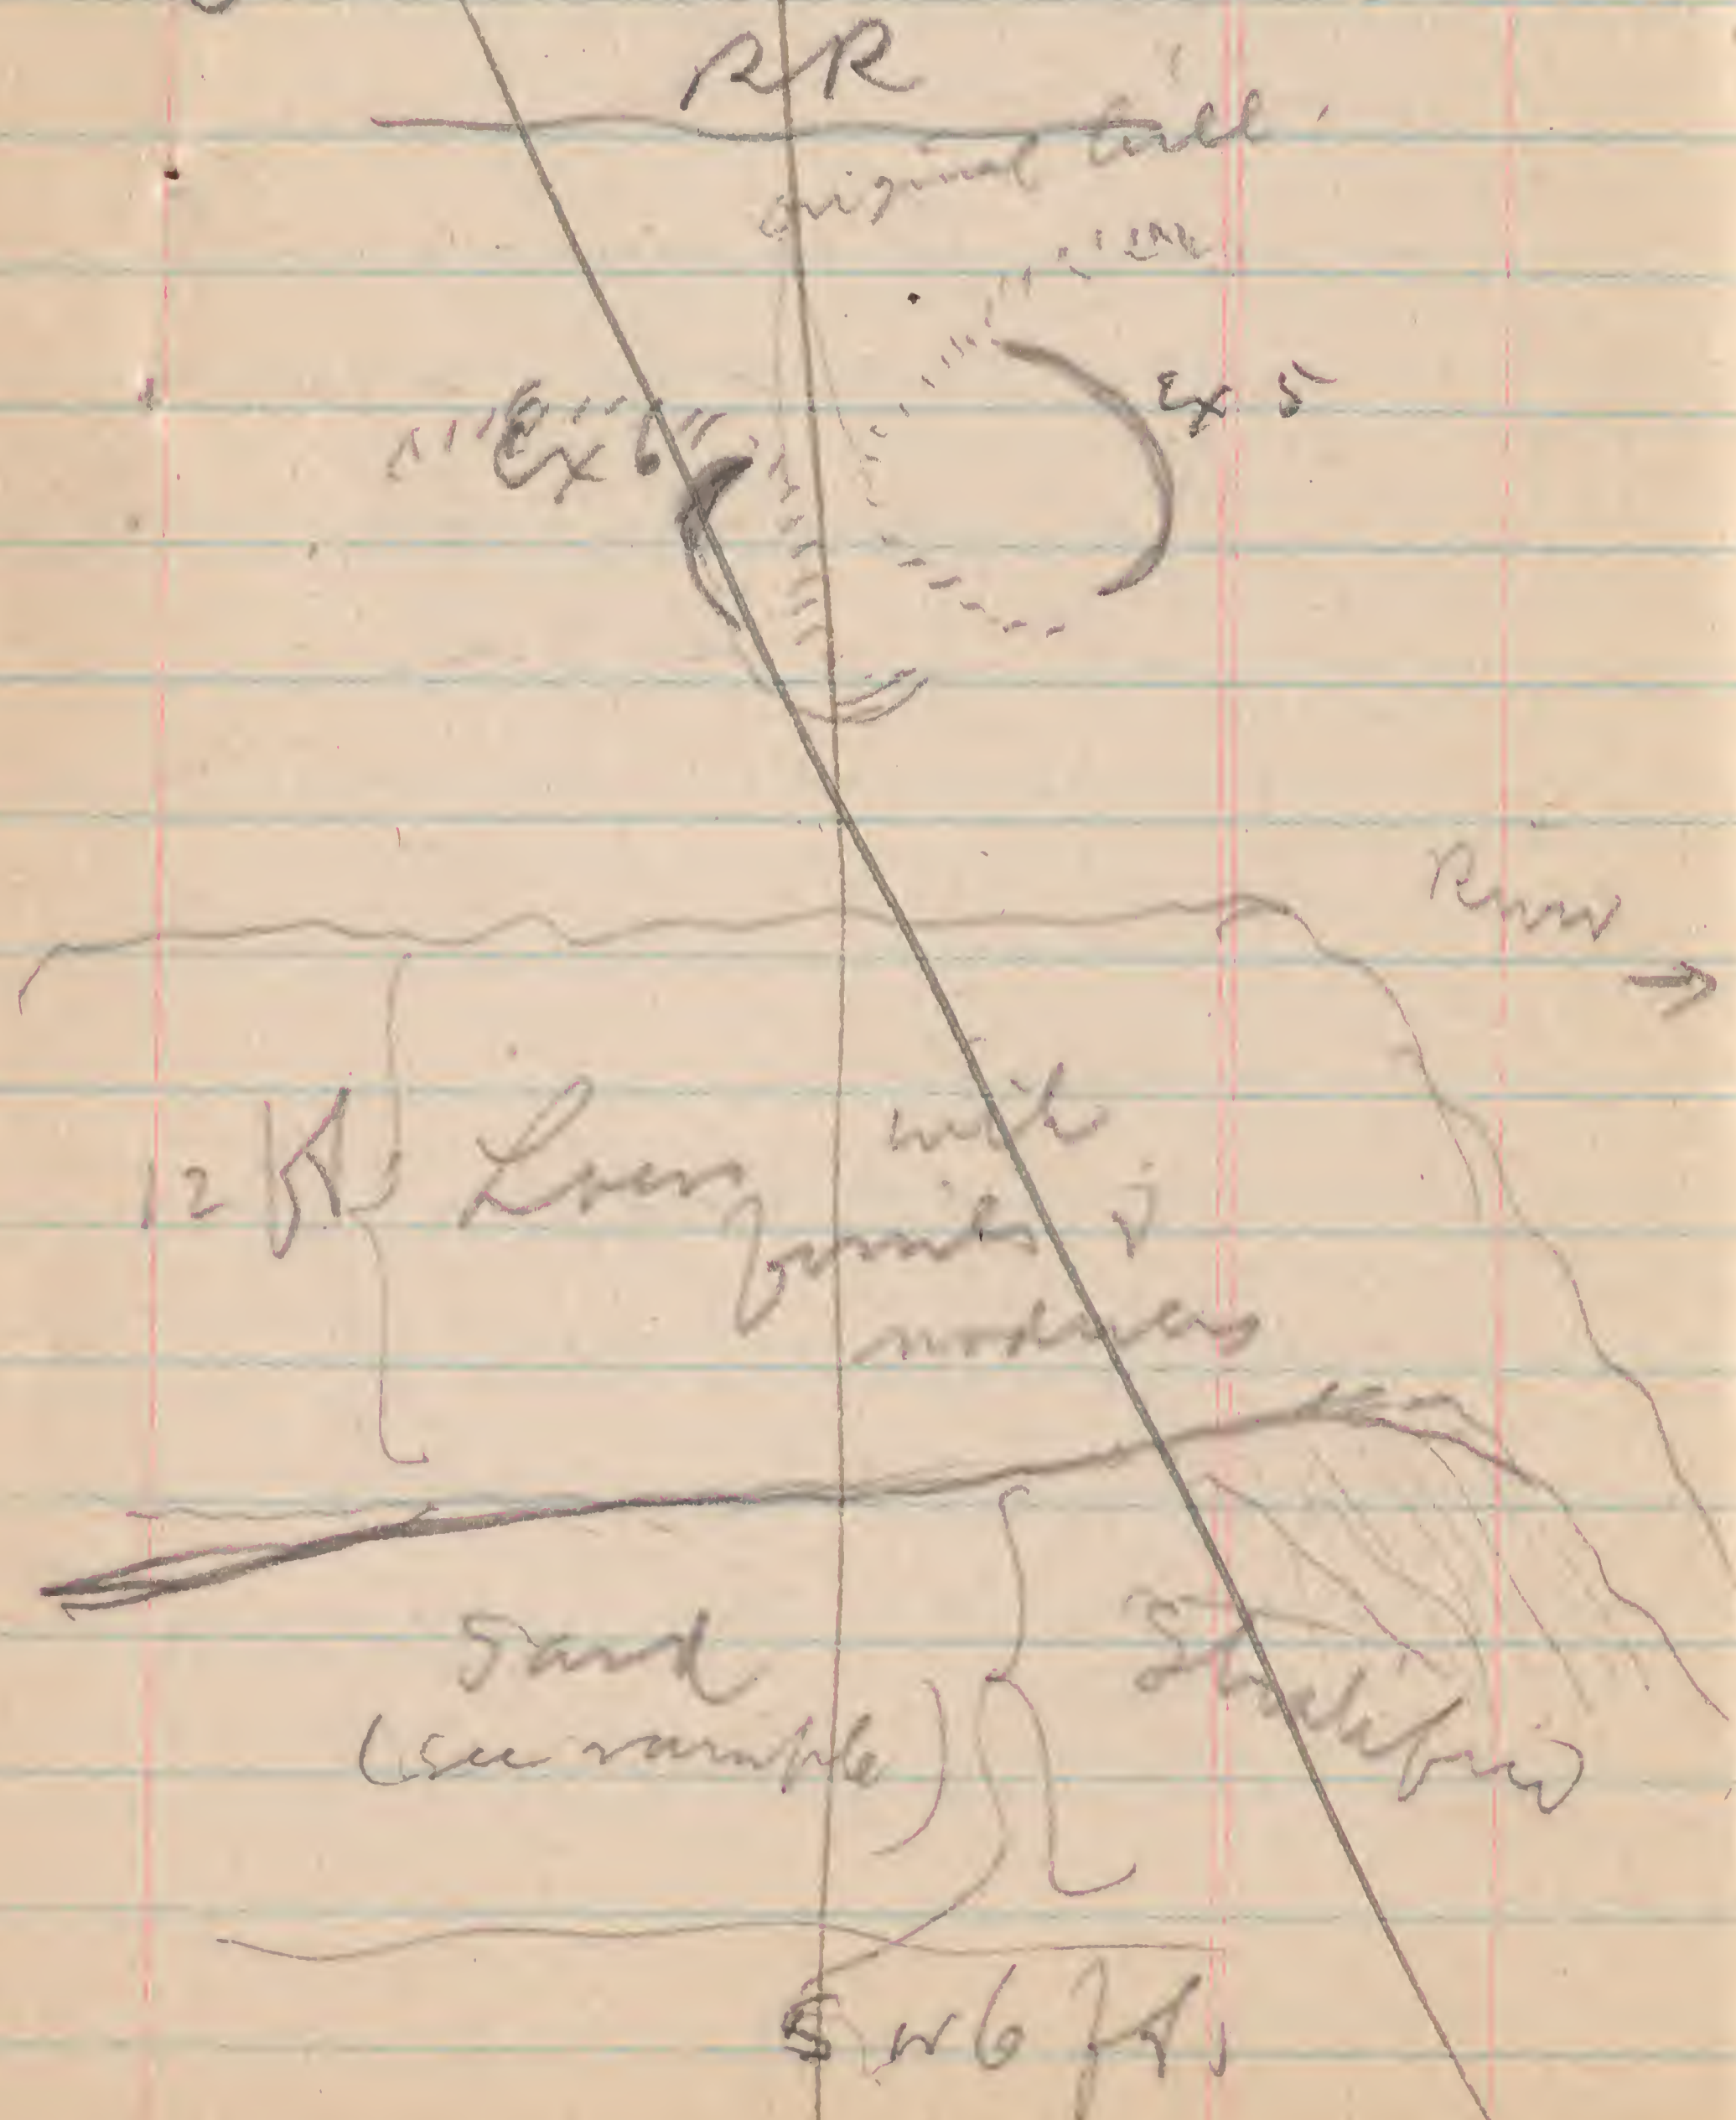 RR
original hill
Ex 5
Ex 6
River
→
12 ft
Loess with
fossils &
nodules
Sand
(see sample)
Stratified
5 or 6 fts